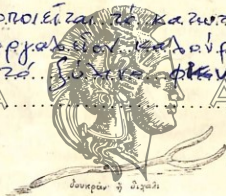 οποιείται τό κατωτ
εργαλείον καλούμ
τά ξύλινα
δουκράνι ή διχάλι